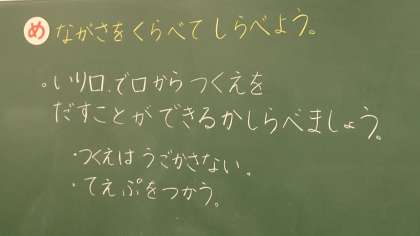 め ながさをくらべてしらべよう。
。いり口、で口からつくえを
だすことができるかしらべましょう。
・つくえはうごかさない。
・てえぷをつかう。